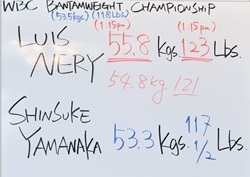 WBC BANTAMWEIGHT CHAMPIONSHIP
(53.5kgs) (118Lbs)
(1:15pm) (1:15pm)
LUIS NERY 55.8 Kgs. 123 Lbs.
54.8kg 121
SHINSUKE YAMANAKA 53.3 Kgs. 117 1/2 Lbs.